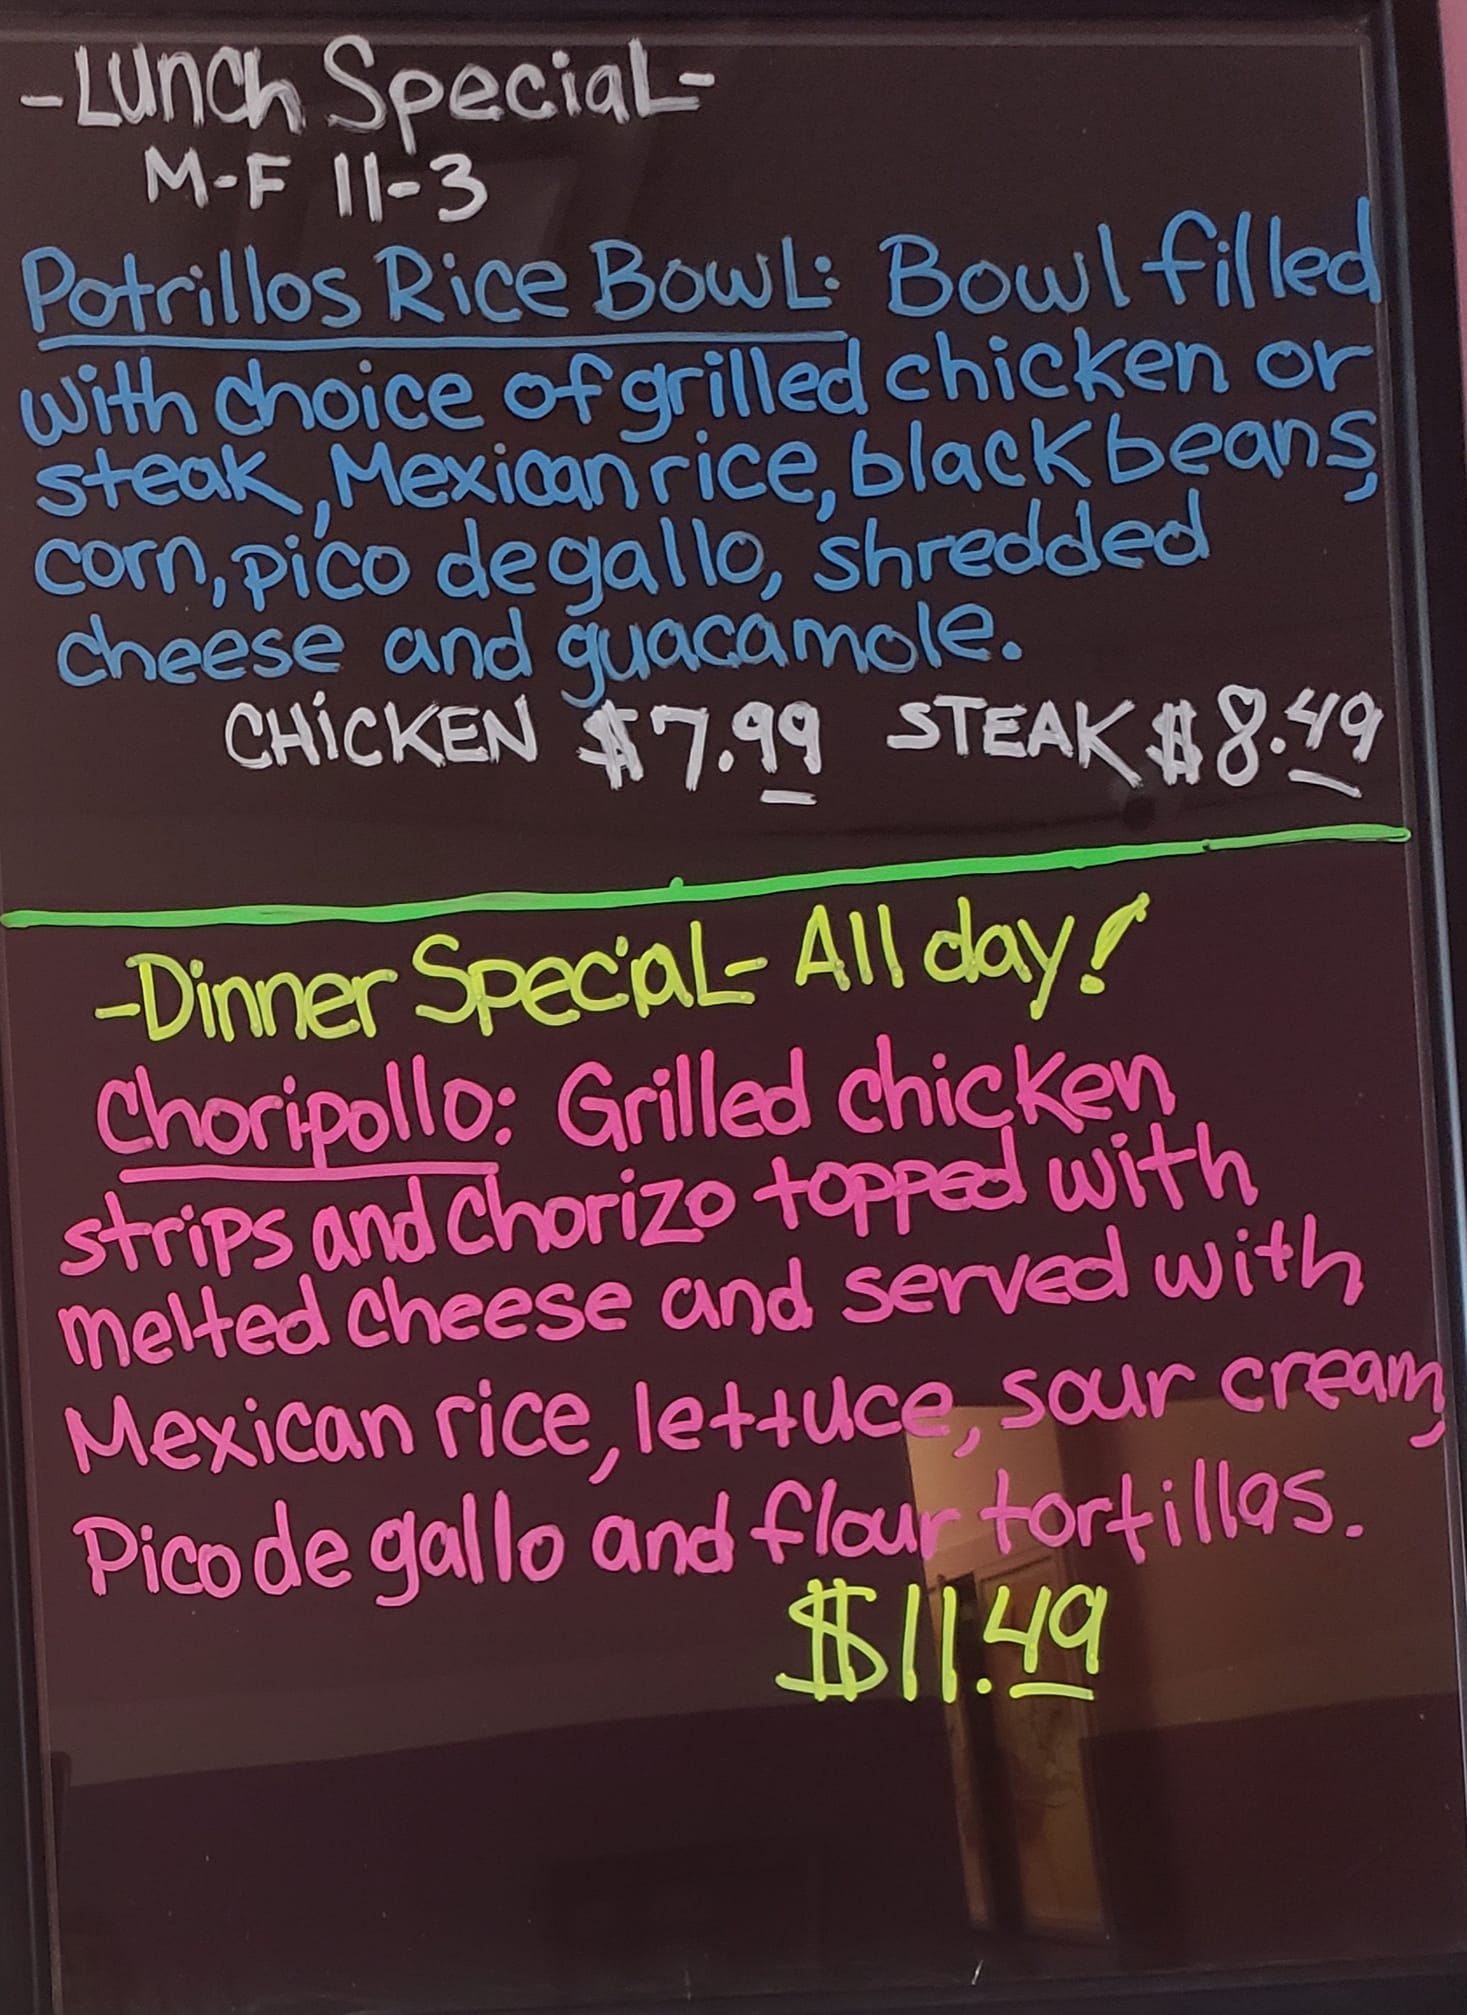 -Lunch Special-
M-F 11-3
Potrillos Rice Bowl: Bowl filled
with choice of grilled chicken or
steak, Mexican rice, black beans,
corn, pico de gallo, shredded
cheese and guacamole.
CHiCKEN $7.99 STEAK $8.49
-Dinner Special- All day!
Choripollo: Grilled chicken
strips and Chorizo topped with
melted cheese and served with
Mexican rice, lettuce, sour cream,
Pico de gallo and flour tortillas.
$11.49